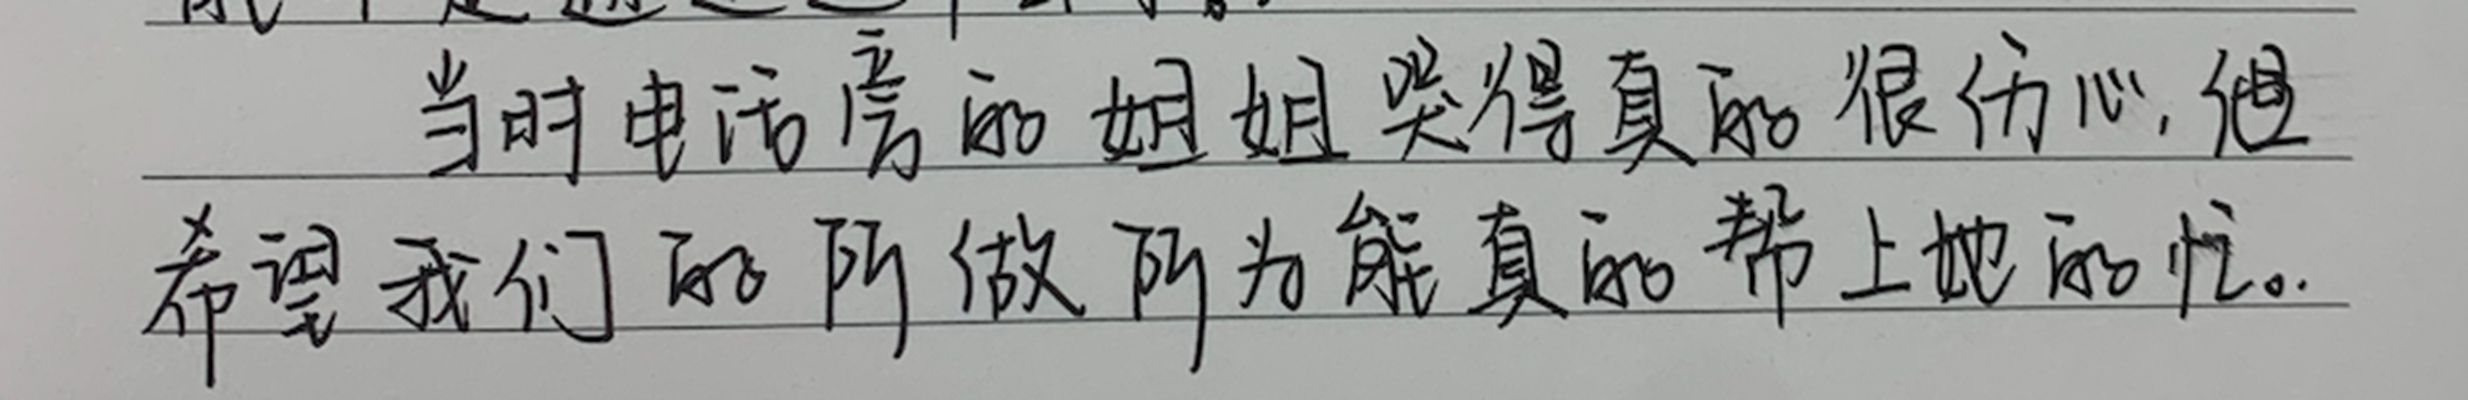 当时电话旁的姐姐哭得真的很伤心,但
希望我们的所做所为能真的帮上她的忙。